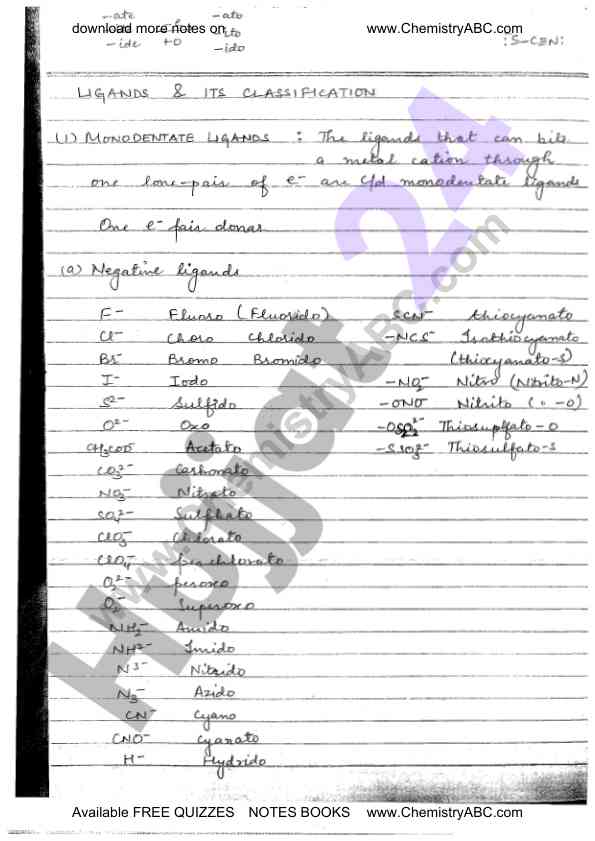 -ate -ato
download more notes on ito www.ChemistryABC.com
-ide +o -ido :S-CEN:
LIGANDS & ITS CLASSIFICATION
(1) MONODENTATE LIGANDS : The ligands that can bite
a metal cation through
one lone-pair of e- are c/d monodentate ligands
One e- pair donar
(a) Negative ligands
F- Fluoro (Fluorido) SCN- thiocyanato
Cl- Choro Chlorido -NCS- Isothiocyanato
Br- Bromo Bromido (thiocyanato-S)
I- Iodo -NO2- Nitro (Nitrito-N)
S2- Sulfido -ONO- Nitrito ( " -O)
O2- Oxo Thiosulfato-O
CH3COO- Acetato Thiosulfato-S
CO3 2- Carbonato
NO3- Nitrato
SO4 2- Sulphato
ClO3- Chlorato
ClO4- perchlorato
O2 2- peroxo
O2- Superoxo
NH2- Amido
NH2- Imido
N3- Nitrido
N3- Azido
CN- Cyano
CNO- Cyanato
H- Hydrido
Hujjat 24
www.ChemistryABC.com
Available FREE QUIZZES NOTES BOOKS www.ChemistryABC.com